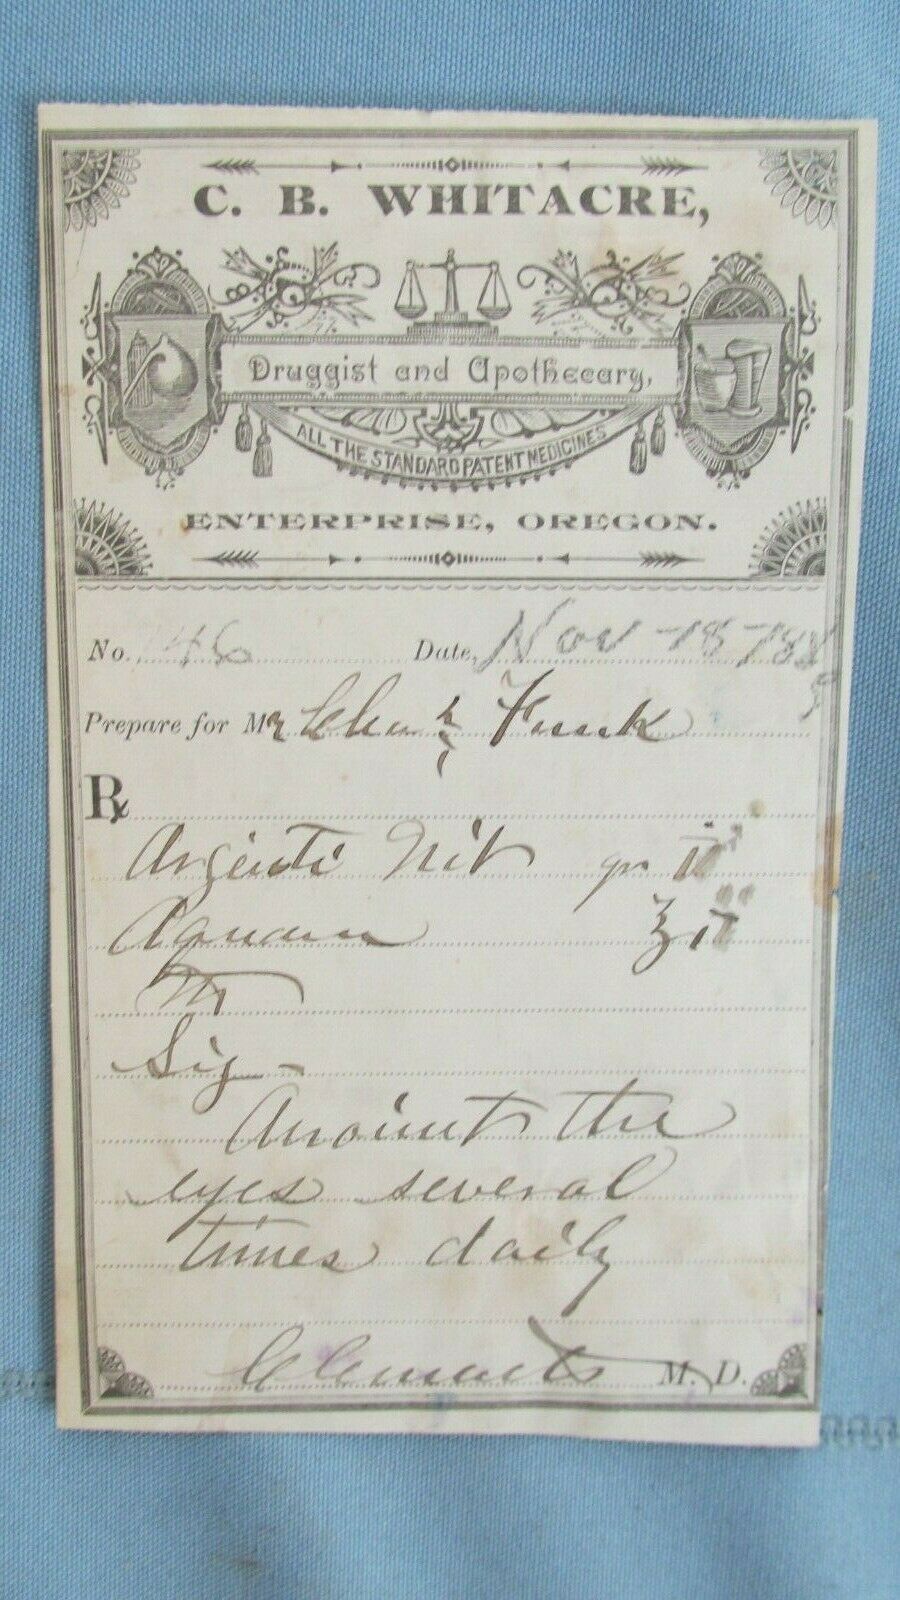 C. B. WHITACRE,
Druggist and Apothecary,
ALL THE STANDARD PATENT MEDICINES
ENTERPRISE, OREGON.
No. 146 Date, Nov 18 188
Prepare for Mr Funk
℞
Argenti Nit gr ii
Aquam ℥ ii
M
Sig -
Anoint the
eyes several
times daily
Clements M. D.